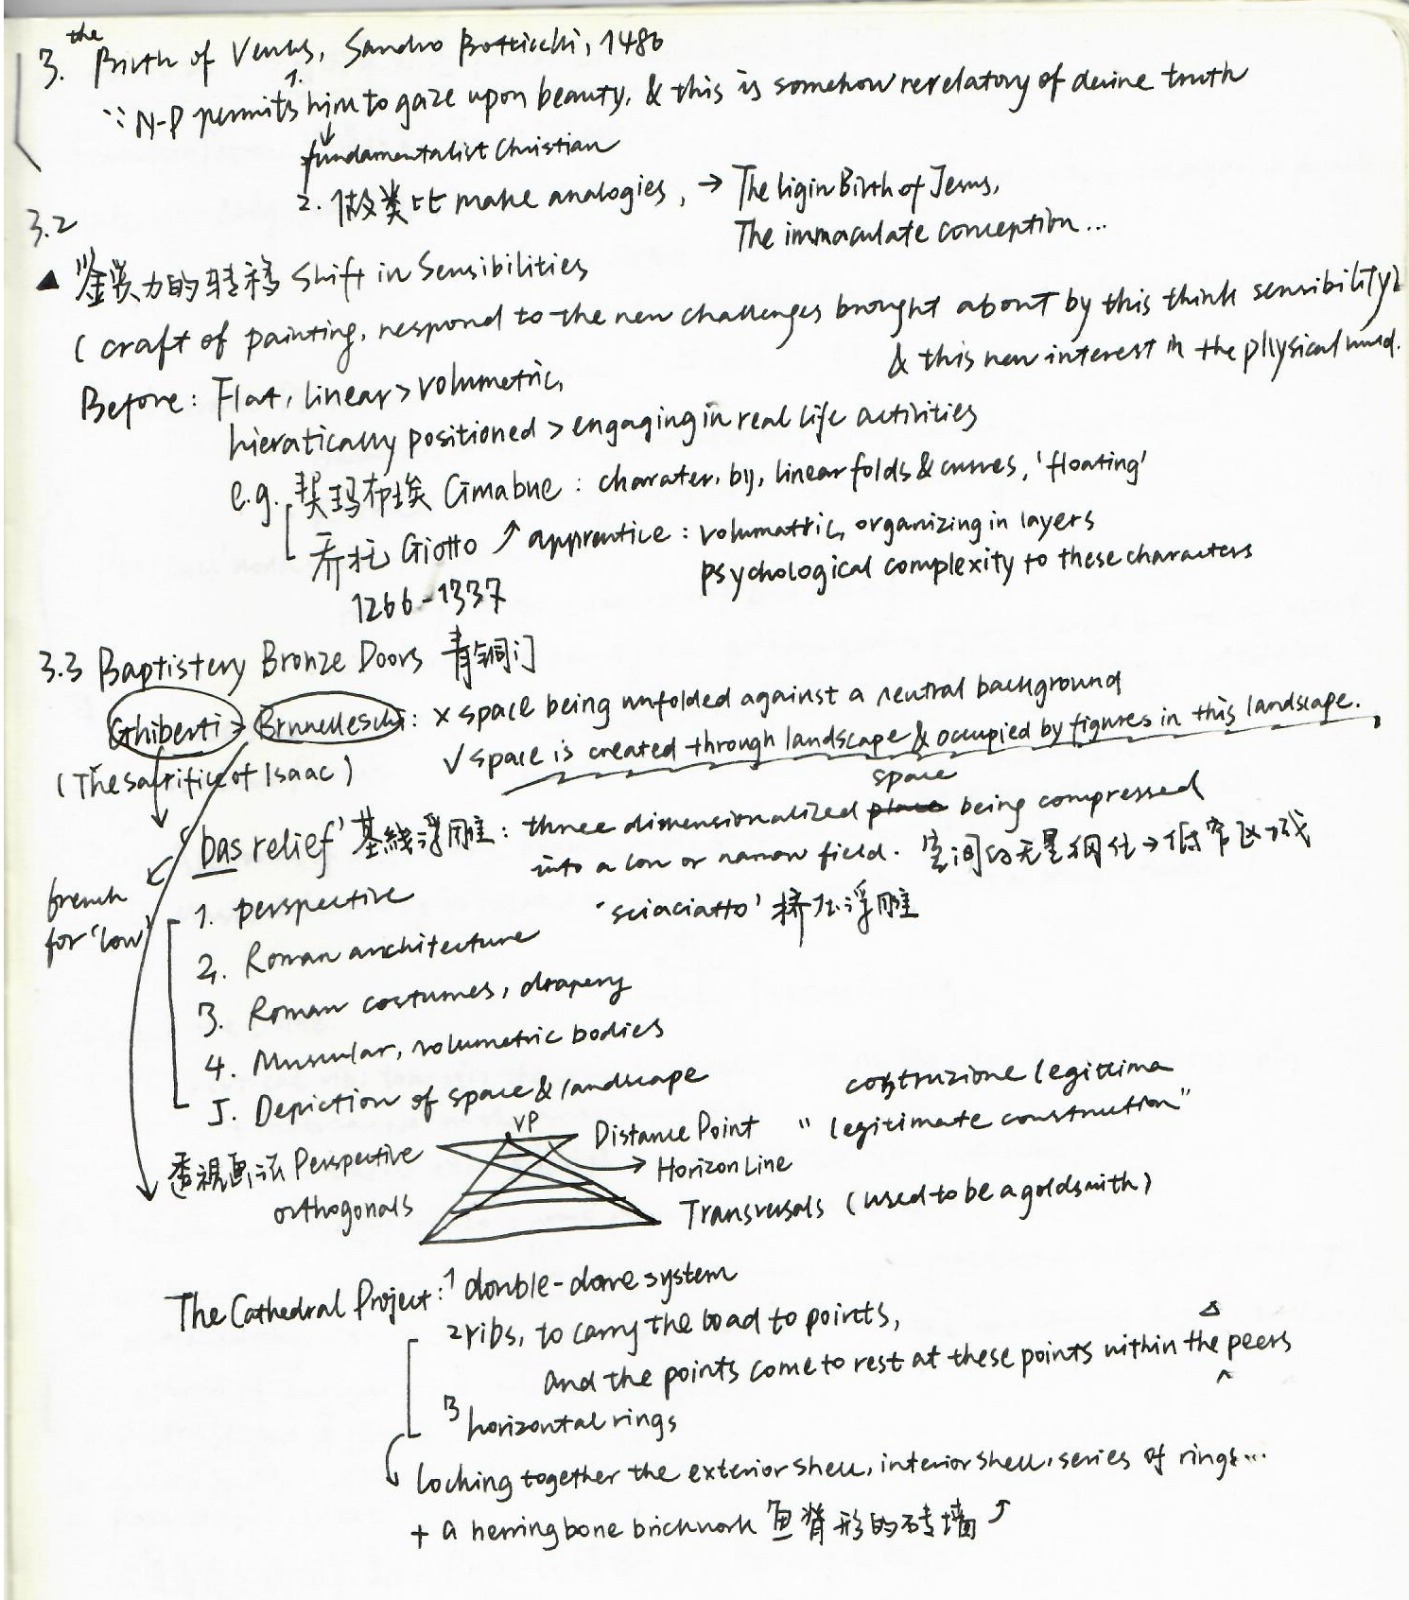 the
3. Birth of Venus, Sandro Botticelli, 1486
∵ N-P permits 1. him to gaze upon beauty, & this is somehow revelatory of devine truth
fundamentalist Christian
2. 做类比 make analogies, → The Vigin Birth of Jesus,
The immaculate conception...
3.2
▲ 鉴赏力的转移 Shift in Sensibilities
( craft of painting, respond to the new challenges brought about by this think sensibility)
& this new interest in the physical
Before: Flat, linear > volumetric,
hieratically positioned > engaging in real life activities
e.g. 契玛布埃 Cimabue : charater, by, linear folds & curves, 'floating'
乔托 Giotto ↗ apprentice : volumattric, organizing in layers
1266-1337 psychological complexity to these characters
3.3 Baptistery Bronze Doors 青铜门
Ghiberti > Brunelleschi: × space being unfolded against a neutral background
(The sacrifice of Isaac) √ space is created through landscape & occupied by figures in this landscape.
space
'bas relief' 基线浮雕 : three dimensionalized place being compressed
into a low or narrow field. 空间的无量钢化→低窄区域
french
for 'low'
'sciaciatto' 挤压浮雕
1. perspective
2. Roman architecture
3. Roman costumes, drapery
4. Muscular, volumetric bodies
5. Depiction of space & landscape
costruzione legittima
VP Distance Point "legitimate construction"
透視画法 Perspective Horizon Line
orthogonals Transversals (used to be a goldsmith)
The Cathedral Project: 1 double-dome system
2 ribs, to carry the load to points,
and the points come to rest at these points within the peers
3 horizontal rings
locking together the exterior shell, interior shell, series of rings...
+ a herringbone brickwork 鱼脊形的砖墙 ↗